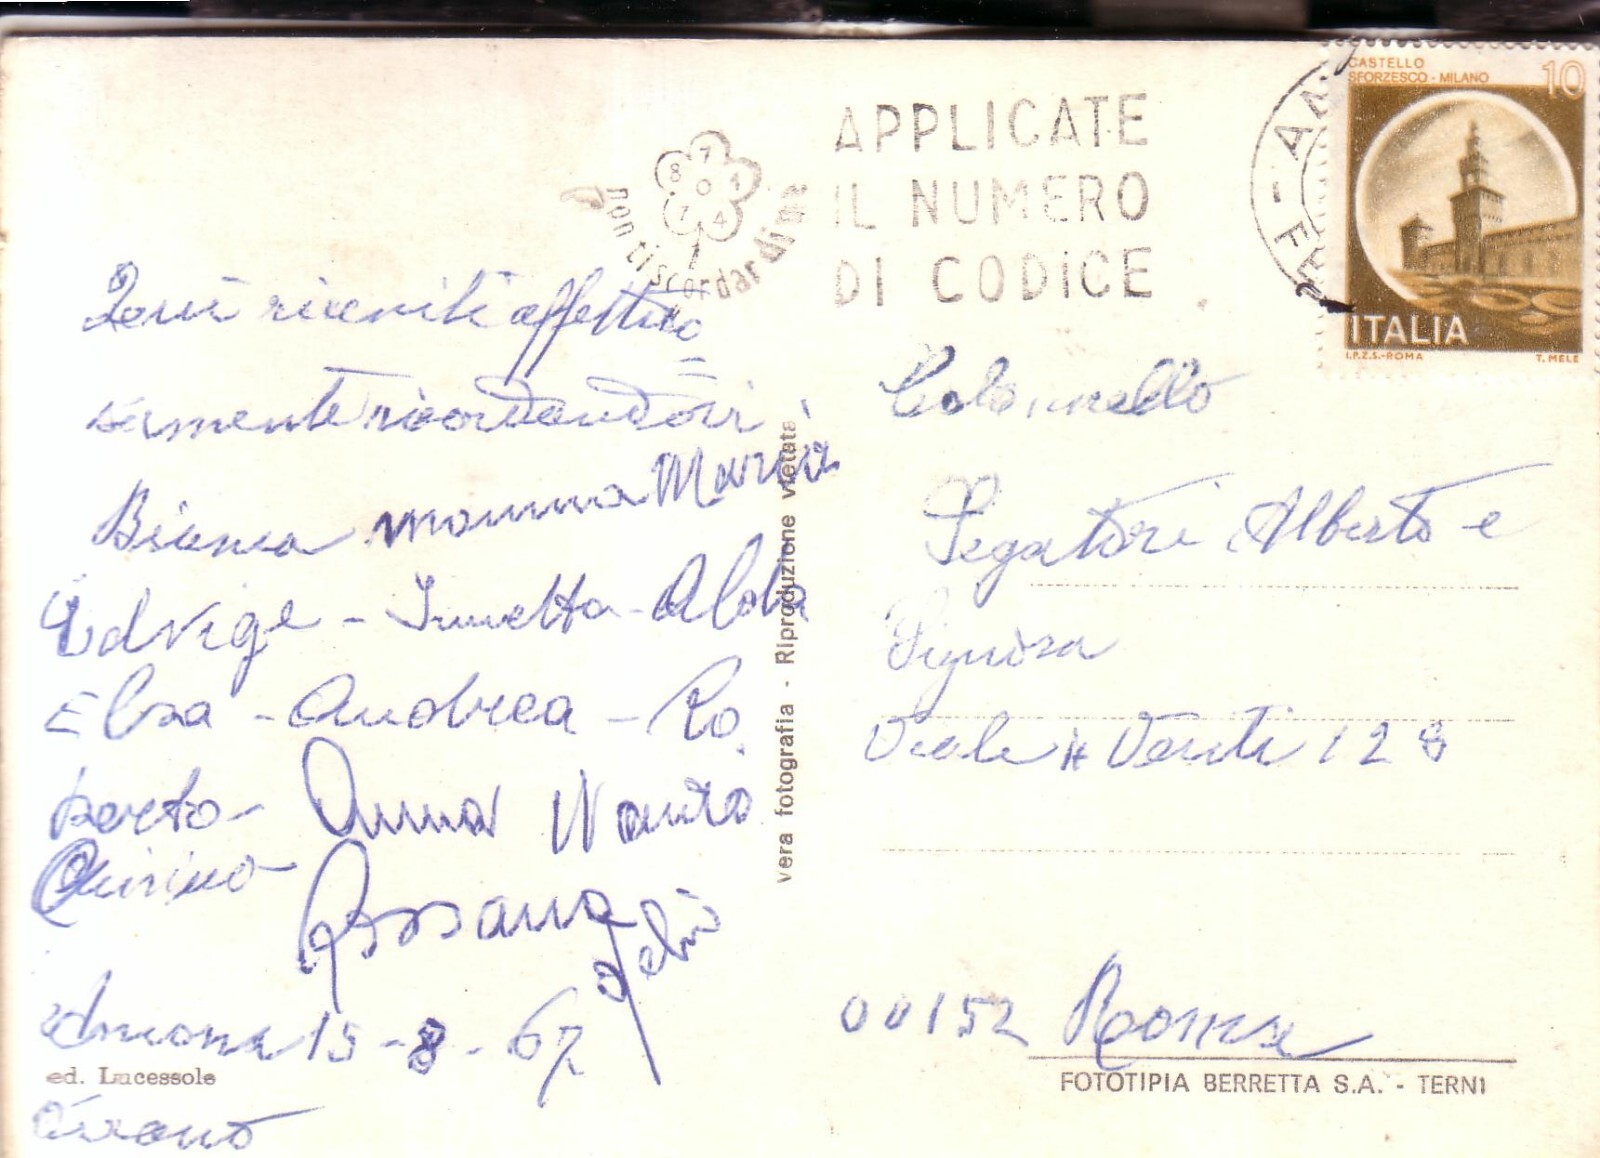 APPLICATE
IL NUMERO
DI CODICE
non ti scordar di me
8 7 1 0 7 4
CASTELLO
SFORZESCO - MILANO
10
ITALIA
I.P.Z.S.-ROMA T. MELE
affettuo
=
samente ricordandovi
Bianca mamma Maria
Edvige - Annetta - Alda
Elsa - Andrea - Ro
berto - Anna Nanto
Quirino
Rossana
Ancona 15-8-67
ed. Lucessole
vera fotografia - Riproduzione vietata
Colonnello
Segatori Alberto e
Signora
Viale 4 Venti 128
00152 Roma
FOTOTIPIA BERRETTA S.A. - TERNI